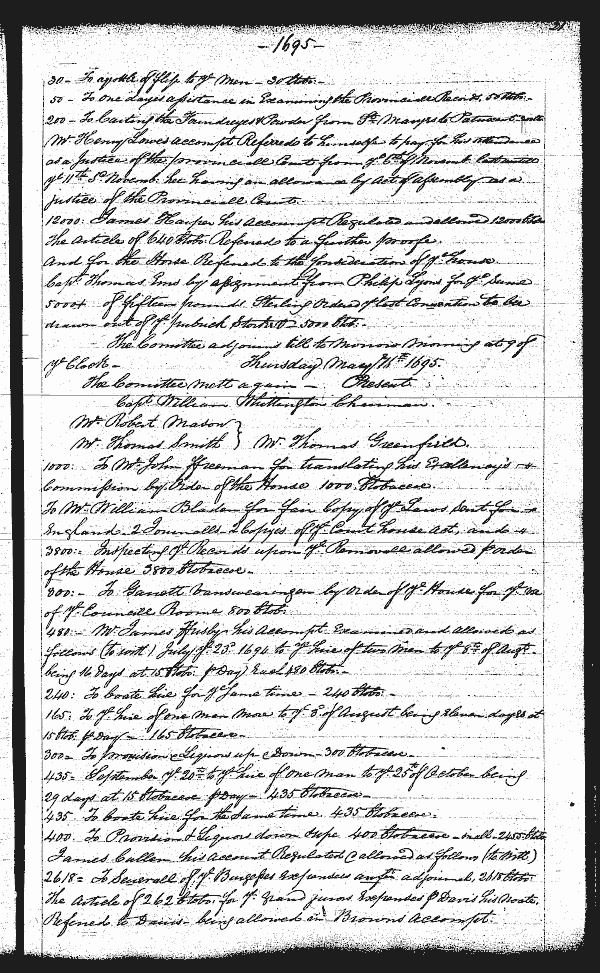 - 1695 -
30 - To a pottle of flip to ye Men - 30 lbtob: -
50 - To one dayes assistance in Examining the Provinciall Records, 50 lbtob: -
200 - To Carting the Foundreyes & Powder from St Maryes to Patuxent
Mr Henry Lowes accompt Referred to himselfe to pay for his attendance
as a Justice of the provinciall Court from ye 6th of Novemb: last untill
ye 11th Do Novemb: hee having an allowance by Act of Assembly as a
Justice of the Provinciall Court.
12000: James Harper his Accompt Regulated and allowed 12000 lbtob
The Article of 640 lbtob: Referred to a further proofe.
And for the Horse Referred to the Consideration of ye house
Capt Thomas Ems by assignment from Philip Lyons for ye Sume
5000 of fifteen pounds Sterling Ordered ye last Convention to be
drawn out of ye publick Stock 5000 lbtob: -
The Comittee adjourns till to Morrow Morning at 9 of
ye Clock - Thursday May 1695.
The Comittee mett again - Present
Capt William Whittington Chairman.
Mr Robert Mason }
Mr Thomas Smith } Mr Thomas Greenfield.
1000: To Mr John Freeman for translating his Excellency's
Commission by Order of the House 1000 lbtobaccoe.
To Mr William Bladen for fair Copy of ye Laws sent for
England - 2 Journalls 2 Copies of ye Court house Act, and
3800: - Inspecting ye Records upon ye Removall allowed p order
of the House 3800 lbtobaccoe -
800: - To Garrett Vansweringen by Order of ye House for ye use
of ye Councill Roome 800 lbtob:
480 - Mr James Frisby his Accompt Examined and allowed as
follows (to witt) July ye 25. 1694 to ye hire of two Men to ye 8th of Augt.
being 16 days at 15 lbtob: p Day Each 480 lbtob: -
240: To boate hire for ye Same time - 240 lbtob: -
165: To ye hire of one man More to ye 8 of August being Eleven dayes at
15 lbtob. p Day - 165 lbtobaccoe -
300 = To provision & Liquors up & Down - 300 lbtobaccoe -
435 = September ye 20th to ye hire of One Man to ye 25th of October being
29 days at 15 lbtobaccoe p Day - 435 lbtobaccoe -
435 To boate hire for the Same time 435 lbtobaccoe.
400 To Provision & Liquors down & upe 400 lbtobaccoe - in all - 2455 lbtob
James Cullen his Account Regulated & allowed as follows (to Witt)
2618 = To Severall of ye Burgesses Expences adjourned, 2618 lbtob:
The Article of 262 lbtob: for ye Grand jurors Expenses p Davis his Noate
Referred to Davis being allowed in Browns Accompt.